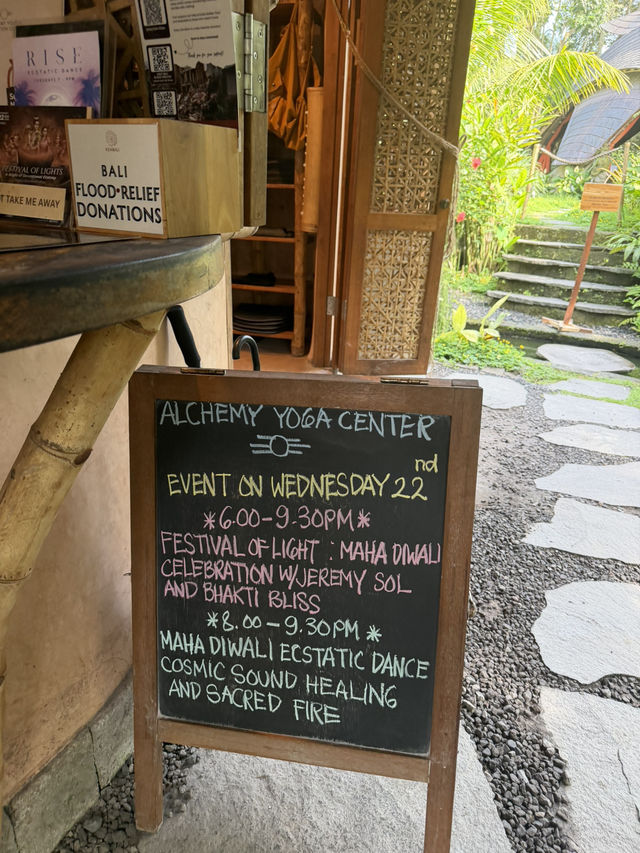 RISE
ECSTATIC DANCE
FESTIVAL OF LIGHTS
T TAKE ME AWAY
BALI
FLOOD•RELIEF
DONATIONS
ALCHEMY YOGA CENTER
EVENT ON WEDNESDAY 22nd
*6.00-9.30PM*
FESTIVAL OF LIGHT : MAHA DIWALI
CELEBRATION W/JEREMY SOL
AND BHAKTI BLISS
*8.00-9.30PM*
MAHA DIWALI ECSTATIC DANCE
COSMIC SOUND HEALING
AND SACRED FIRE